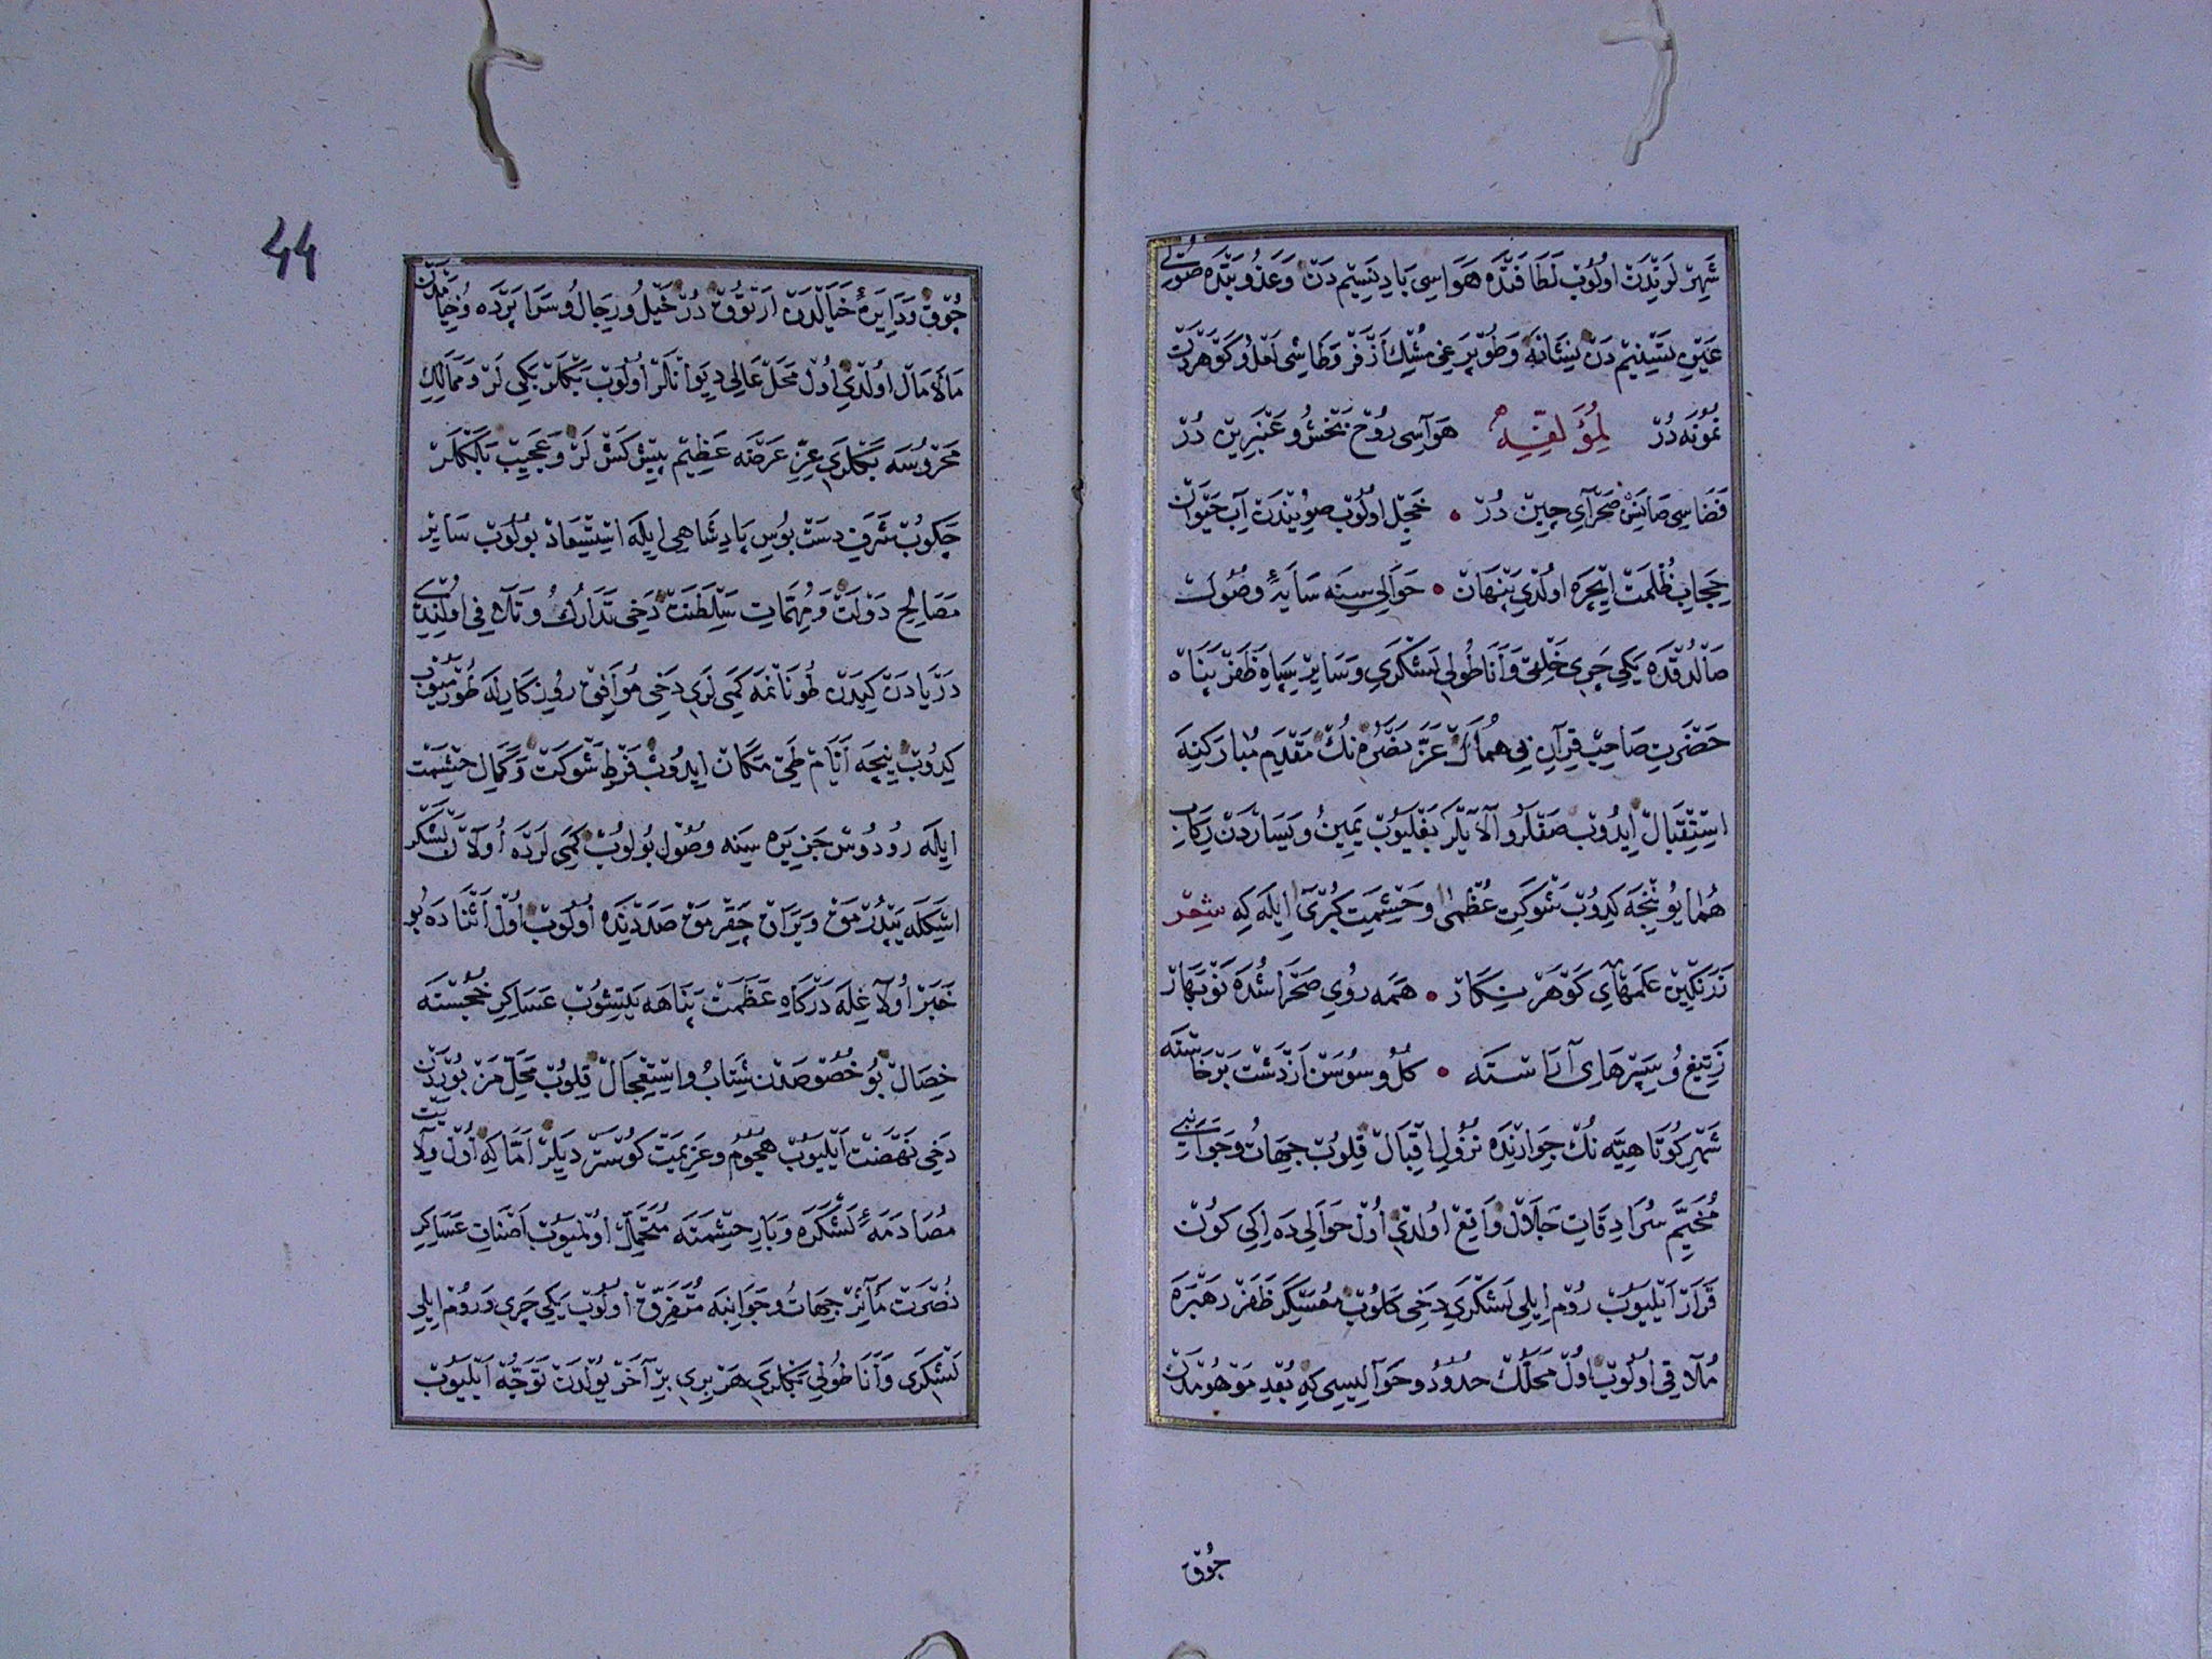 شَهِرْلَرِنْدَنْ اُولُوبْ لَطَافَتْدَه هَوَاسِى بَادِ نَسِيمْدَنْ وَعَذُوبَتْدَه صُولَرِى
عَيْنِ تَسْنِيمْدَنْ نِشَانَه وَطُوپْرَغِى مُشْكِ اَذْفَرْ وَطَاشِى لَعْلُ وَكَوْهَرْدَنْ
نُمُونَه دُرْ لِمُؤَلِّفِه هَوَاسِى رُوحْ بَخْشُ وعَنْبَرِينْ دُرْ
فَضَاسِى صَانَسِنْ صَحْرَآىِ چِينْ دُرْ • خَجِلْ اولُوبْ صُويِنْدَنْ آبِ حَيْوَانْ
حِجَابِ ظُلْمَتْ اِيچْرَه اولْدِى پِنْهَانْ • حَوَالِيسِينَه سَايَۀِ وصُولَتْ
صَالْدُقْدَه يَكِى چَرِى خَلْقِى وَاَنَاطُولِى لَشْكَرِى وَسَايِرْ سِپَاهِ ظَفَرْ پَنَاهْ
حَضْرَتِ صَاحِبْ قِرَآنِ بِى هُمَالْ عَزَّ نَصْرُهُ نُكْ مَقْدَمِ مُبَارَكِنَه
اِسْتِقْبَالْ اِيدُوبْ صَفْلَرُ و آلَايْلَرْ بَغْلَيُوبْ يَمِينُ وَيَسَارْدَنْ رِكَابِ
هُمَايُونِجَه كِدُوبْ شَوكَتِ عُظْمٰى وحَشْمَتِ كُبْرٰى ايلَه كِه شِعْر
زَرَنْكِينْ عَلَمْهَاىِ كَوْهَرْ نِكَارْ • هَمَه رُوىِ صَحْرَا شُدَه نَوْبَهَارْ
زِتِيغُ وسِپَرْهَاىِ آرَاسْتَه • كُلُ وسُوسَنْ اَزْ دَشْتْ بَرْخَاسْتَه
شَهْرِ كُوتَاهِيَه نُكْ جِوَارِنْدَه نُزُولِ اِقْبَالْ قِلُوبْ جِهَاتُ وَجَوَانِبِى
مُخَيَّمِ سُرَادِقَاتِ جَلَالْ وَاقِعْ اولْدِى اُولْ حَوَالِى دَه اِكِى كُونْ
قَرَارْ اَيْلَيُوبْ رُومْ اِيلِى لَشْكَرِى دَخِى كَلُوبْ مُعَسْكَرِ ظَفَرْ رَهْبَرَه
مُلَاقِى اولُوبْ اولْ مَحَلُّكْ حُدُودُ وحَوَالِيسِى كِه بُعْدِ مَوْهُومْدَنْ
جُوقْ
44
جُوقْ وَدَايِرَۀِ خَيَالْدَنْ اَرْتُوقْ دُرْ خَيْلُ ورِجَالُ وسَرَاپَرْدَه وُخِيَامْدَنْ
مَالَامَالْ اولْدِى اُولْ مَحَلْ عَالِى دِيوَانْلَرْ اولُوبْ بَكْلَرْ بَكِى لَرْ وَمَمَالِكِ
مَحْرُوسَه بَكْلَرِى عِزِّ عَرْضَه عَظِيمْ پِيشْكَشْ لَرْ وَعَجِيبْ بَلَكْلَرْ
چَكُوبْ شَرَفِ دَسْتْ بُوسِ پَادِشَاهِى ايلَه اِسْتِسْعَادْ بُولُوبْ سَايِرْ
مَصَالِحِ دَوْلَتْ وَمُهِمَّاتِ سَلْطَنَتْ دَخِى تَدَارُكُ وتَلَافِى اولِنْدِى
دَرْيَادَنْ كِيدَنْ طُونَانْمَه كَمِى لَرِى دَخِى مُوَافِقْ رُوزِكَارِلَه طُورْمَيُوبْ
كِدُوبْ نِيچَه اَيَّامْ طَىِّ مَكَانْ ايدُوبْ فَرْطِ شَوكَتْ وَكَمَالِ حَشْمَتْ
ايلَه رُودُوسْ جَزِيرَه سِينَه وصُولْ بُولُوبْ كَمِى لَرْدَه اُولَانْ لَشْكَرْ
اِسْكَلَه يَتْدُرْمَقْ وَيَرَاقْ چِقَرْمَقْ صَدَدِنْدَه اولُوبْ اُولْ اَثْنَادَه بُو
خَبَرْ اُولَاغِلَه دَرْكَاهِ عَظَمَتْ پَنَاهَه يَتِشُوبْ عَسَاكِرِ خُجَسْتَه
خِصَالْ بُو خُصُوصَدَنْ شِتَابُ واِسْتِعْجَالْ قِلُوبْ مَحَلِّ مَزْبُورْدَنْ
دَخِى نَهْضَتْ اَيْلَيُوبْ هُجُومُ وعَزِيمَتْ كُوسْتَرْدِيلَرْ اَمَّا كِه اُولْ وِلَايَتْ
مُصَادَمَۀِ لَشْكَرَه وَبَارِ حَشْمَتَه مُتَحَمِّلْ اولْمَيُوبْ اَصْنَافِ عَسَاكِرِ
نُصْرَتْ مَآثِرْ جِهَاتُ وجَوَانِبَه مُتَفَرِّقْ اولُوبْ يَكِى چَرِى وَرُومْ ايلِى
لَشْكَرِى وَاَنَاطُولِى بَكْلَرِى هَرْ بِرِى بِرْ آخَرْ يُولْدَنْ تَوَجُّهْ اَيْلَيُوبْ